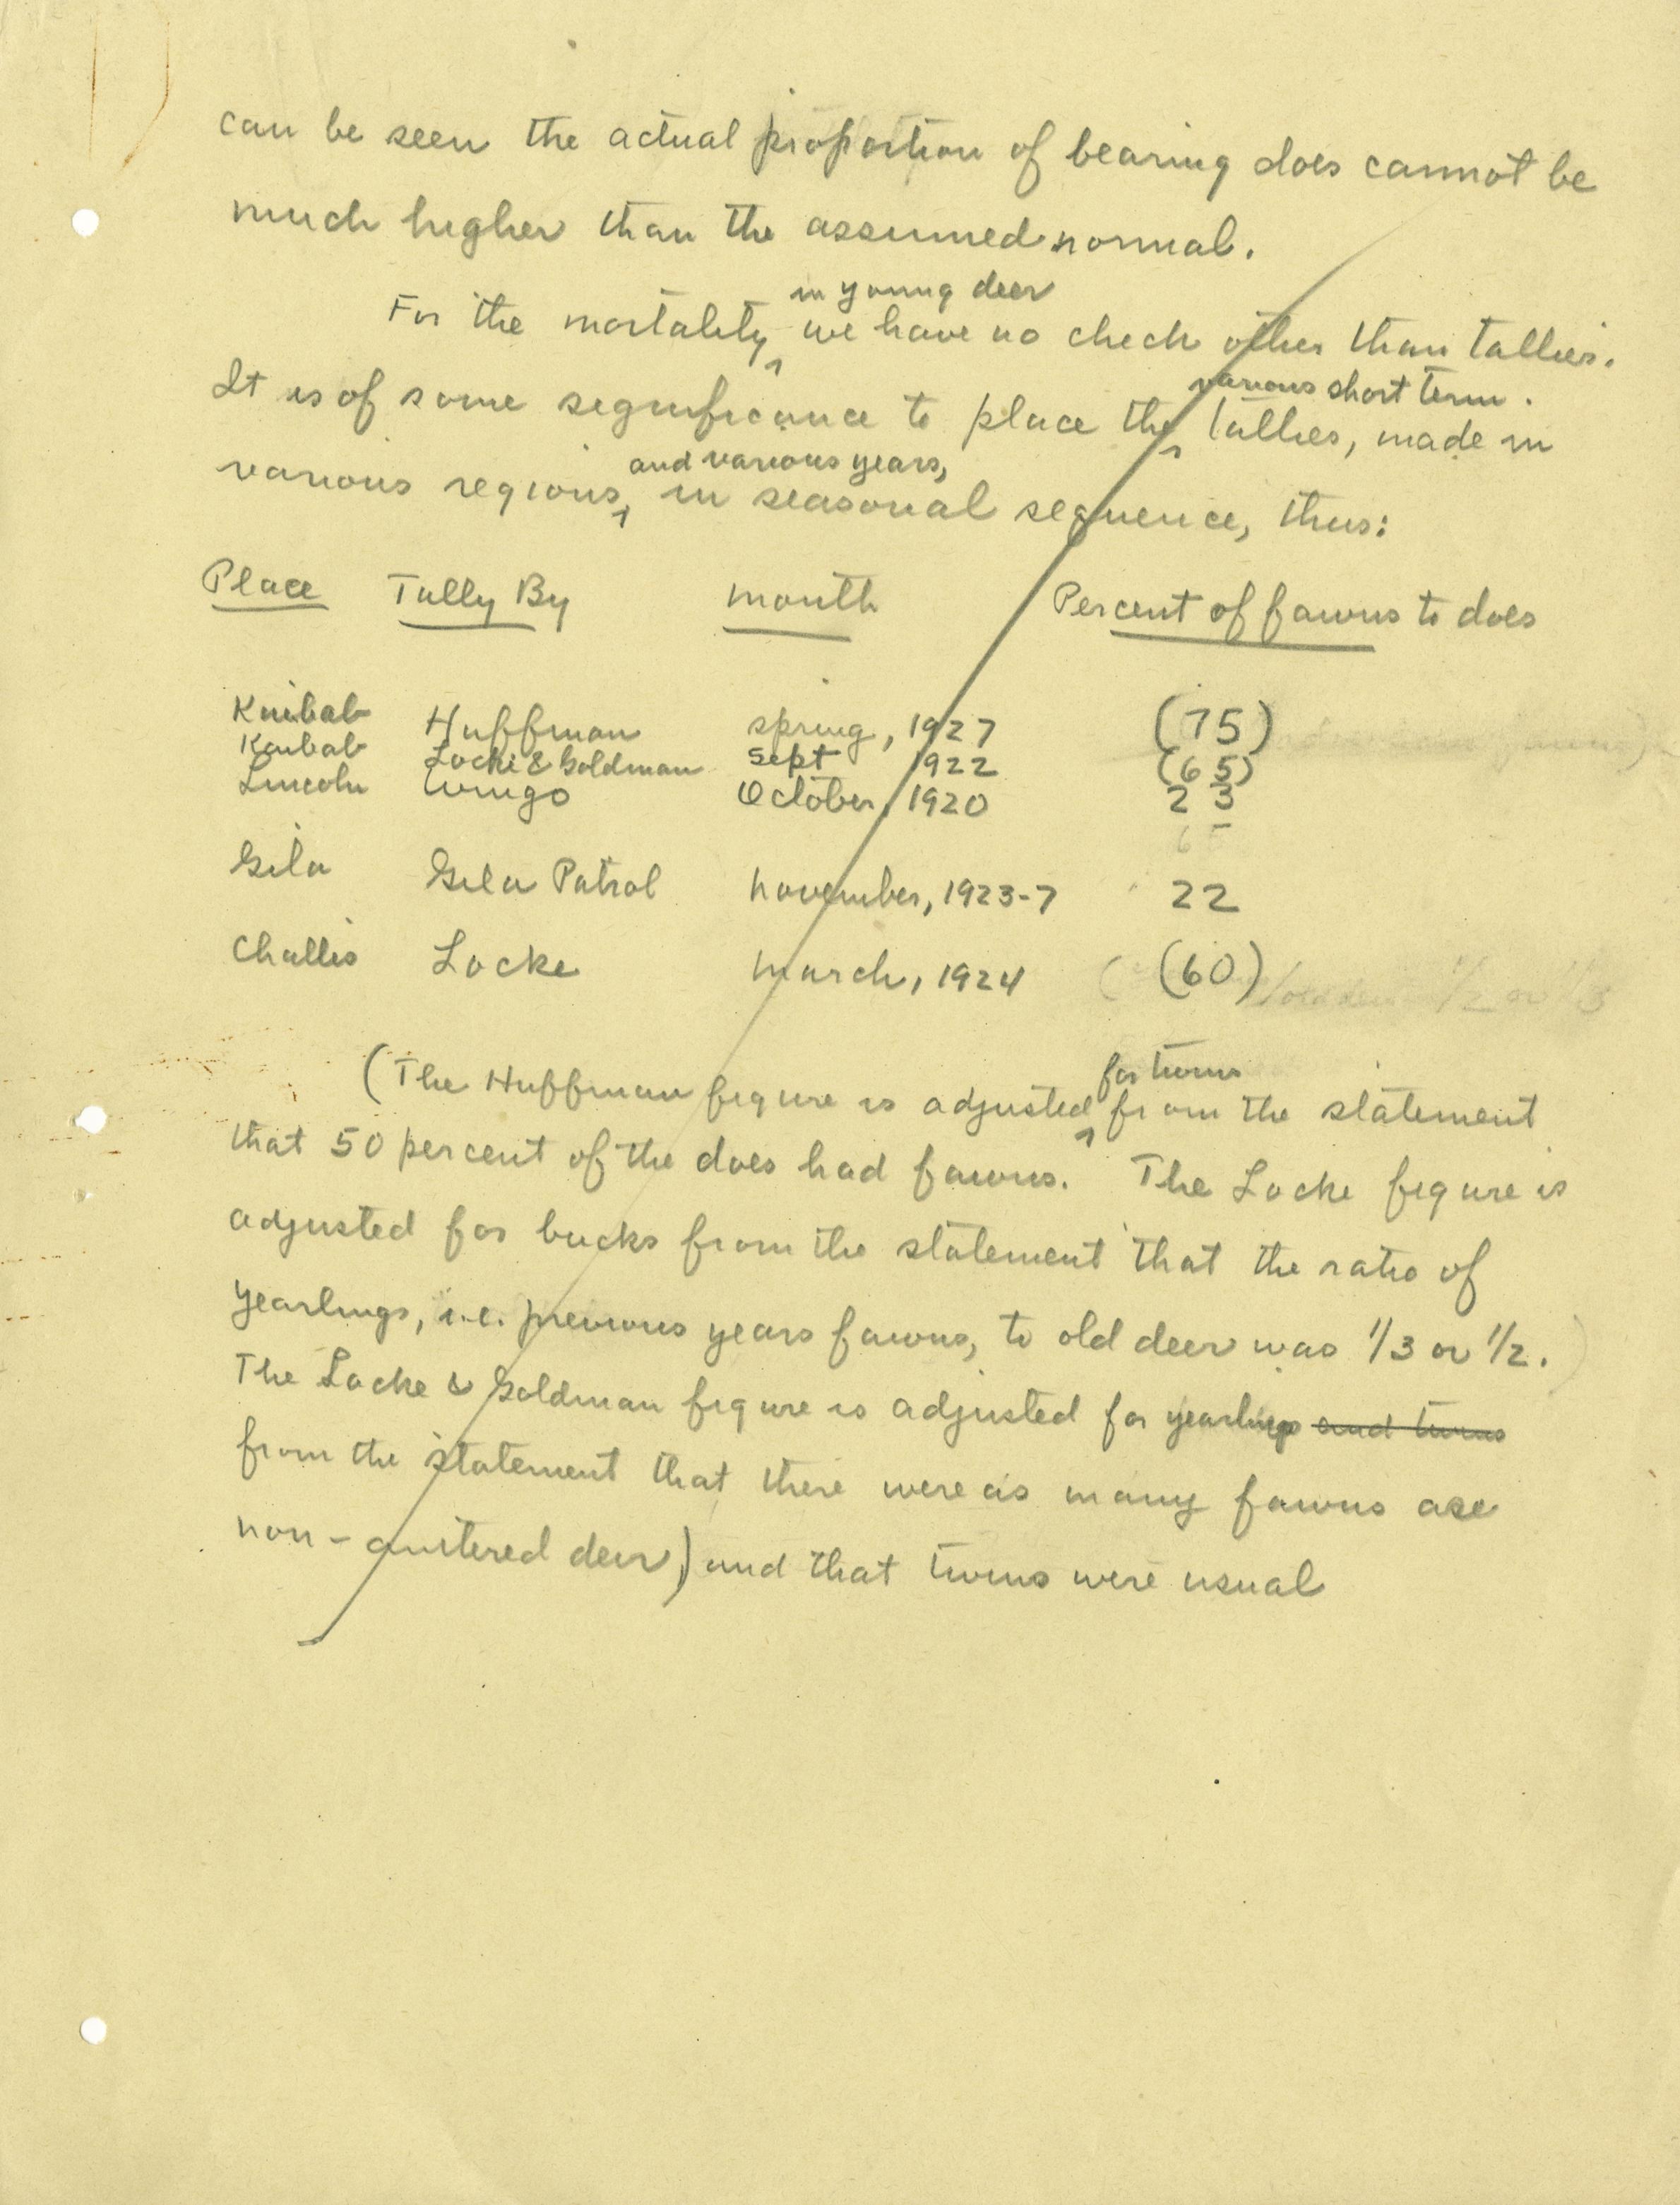 can be seen the actual proportion of bearing does cannot be
much higher than the assumed normal.
in young deer
For the mortality, we have no check other than tallies.
various short term
It is of some significance to place the tallies, made in
and various years,
various regions, in seasonal sequence, thus:
Place Tally By Month Percent of fawns to does
Kaibab Huffman spring, 1927 (75)
Kaibab Locke & Goldman Sept 1922 (65)
Lincoln Wingo October, 1920 23
Gila Gila Patrol November, 1923-7 22
Challis Locke March, 1924 (60)
for twins
(The Huffman figure is adjusted from the statement
that 50 percent of the does had fawns. The Locke figure is
adjusted for bucks from the statement that the ratio of
yearlings, i.e. previous years fawns, to old deer was 1/3 or 1/2.
The Locke & Goldman figure is adjusted for yearlings and twins
from the statement that there were as many fawns as
non-antlered deer) and that twins were usual